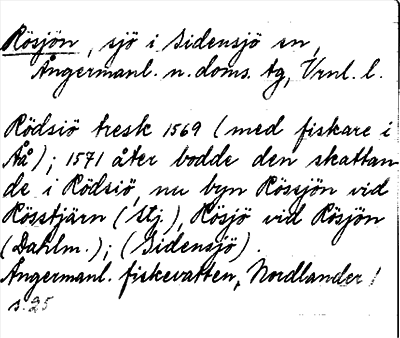 Rösjön, sjö i Sidensjö sn,
Ångermanl. n. doms. tg, Vrnl. l.
Rödsiö tresk 1569 (med fiskare i
Nå); 1571 åter bodde den skattan-
de i Rödsiö, nu byn Rössjön vid
Rösstjärn (stj.), Rösjö vid Rösjön
(Dahlm.); (Sidensjö).
Ångermanl. fiskevatten, Nordlander
s. 25